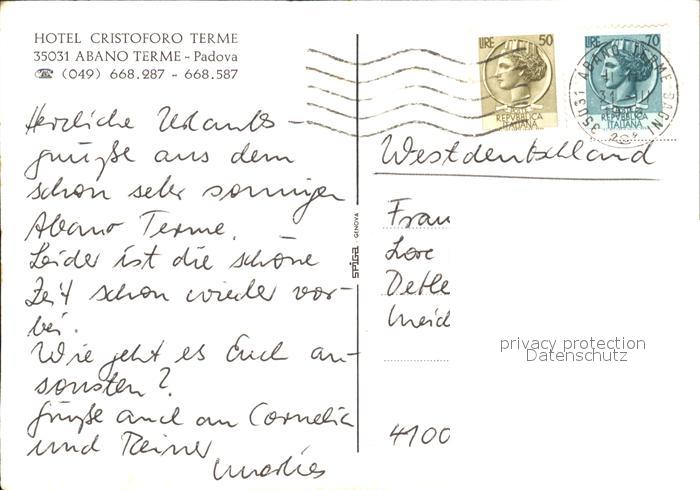 HOTEL CRISTOFORO TERME
35031 ABANO TERME - Padova
☎ (049) 668.287 - 668.587
Herzliche Urlaubs-
grüße aus dem
schon sehr sonnigen
Abano Terme.
Leider ist die schöne
Zeit schon wieder vor-
bei.
Wie geht es Euch an-
sonsten?
Grüße auch an Cornelia
und Rainer
Marlies
SPIGA GENOVA
LIRE 50
POSTE
REPVBBLICA
ITALIANA
LIRE 70
POSTE
REPVBBLICA
ITALIANA
35031 ABANO TERME BAGNI
Westdeutschland
Frau
Lore
Detle
4100
privacy protection
Datenschutz